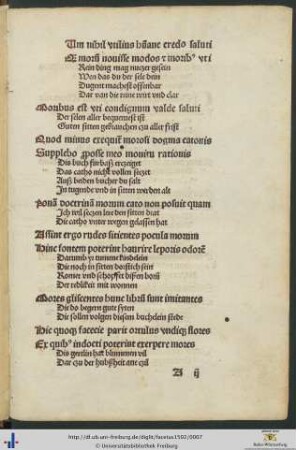 Um nihil vtilius hūane credo saluti
E morū nouisse modos ⁊ morib⁹ vti
Kein ding mag nutzer gesein
Wen das du der sele dein
Dugent machest offenbar
Dar von die reine wirt vnd clar
Moribus est vti condignum valde saluti
Der selen aller bequemest ist
Guten sitten gebrauchen czu aller frist
Quod minus exequit morosi dogma catonis
Supplebo ꝓposse meo monitu rationis
Dis buch fürbaß erzeiget
Das catho nicht vollen seczet
Auß beden bücher du salt
In tugende vnd in sitten werden alt
Bonā doctrinā morum cato non posuit quam
Ich wil seczen hie den sitten drat
Die catho vnter wegen gelassen hat
Assint ergo rudes sitientes pocula morum
Hinc fontem poterint haurire leporis odorē
Darumb yr tumme kindelein
Die noch in sitten dorstich sein
Komet vnd schopffet dißen born
Der redlikeit mit wonnen
Mores gliscentes hunc librū sunt imitantes
Die do begern gute syten
Die sollen volgen diesem buchelein stede
Hic quoqꝫ facecie parit ortulus vndiqꝫ flores
Ex quib⁹ indocti poterint exerpere mores
Dis gertlin hat blummen vil
Dar czu der hubscheit ane czil
A ij
http://dl.ub.uni-freiburg.de/diglit/facetus1502/0007
© Universitätsbibliothek Freiburg
Baden-Württemberg